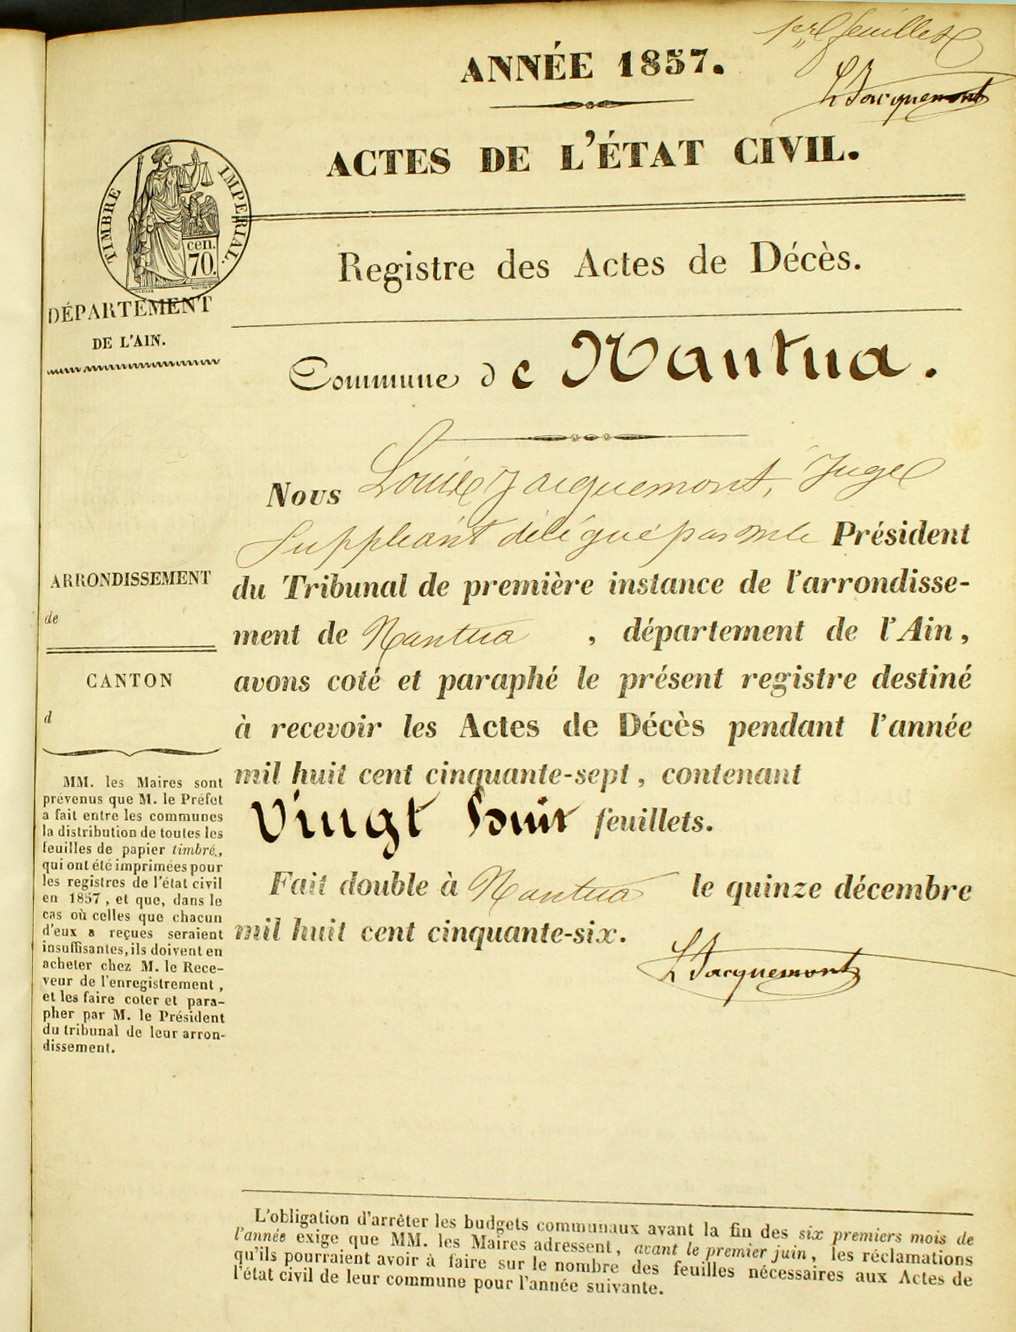 1er feuillet
L Jacquemont
ANNÉE 1857.
ACTES DE L'ÉTAT CIVIL.
TIMBRE IMPERIAL.
cen.
70.
DÉPARTEMENT
DE L'AIN.
Registre des Actes de Décès.
Commune de Nantua.
Nous Louis Jacquemont, Juge
Suppléant délégué par Mr le Président
du Tribunal de première instance de l'arrondisse-
ment de Nantua, département de l'Ain,
avons coté et paraphé le présent registre destiné
à recevoir les Actes de Décès pendant l'année
mil huit cent cinquante-sept, contenant
Vingt huit feuillets.
Fait double à Nantua le quinze décembre
mil huit cent cinquante-six.
L Jacquemont
ARRONDISSEMENT
de
CANTON
d
MM. les Maires sont
prévenus que M. le Préfet
a fait entre les communes
la distribution de toutes les
feuilles de papier timbré,
qui ont été imprimées pour
les registres de l'état civil
en 1857, et que, dans le
cas où celles que chacun
d'eux a reçues seraient
insuffisantes, ils doivent en
acheter chez M. le Rece-
veur de l'enregistrement,
et les faire coter et para-
pher par M. le Président
du tribunal de leur arron-
dissement.
L'obligation d'arrêter les budgets communaux avant la fin des six premiers mois de
l'année exige que MM. les Maires adressent, avant le premier juin, les réclamations
qu'ils pourraient avoir à faire sur le nombre des feuilles nécessaires aux Actes de
l'état civil de leur commune pour l'année suivante.